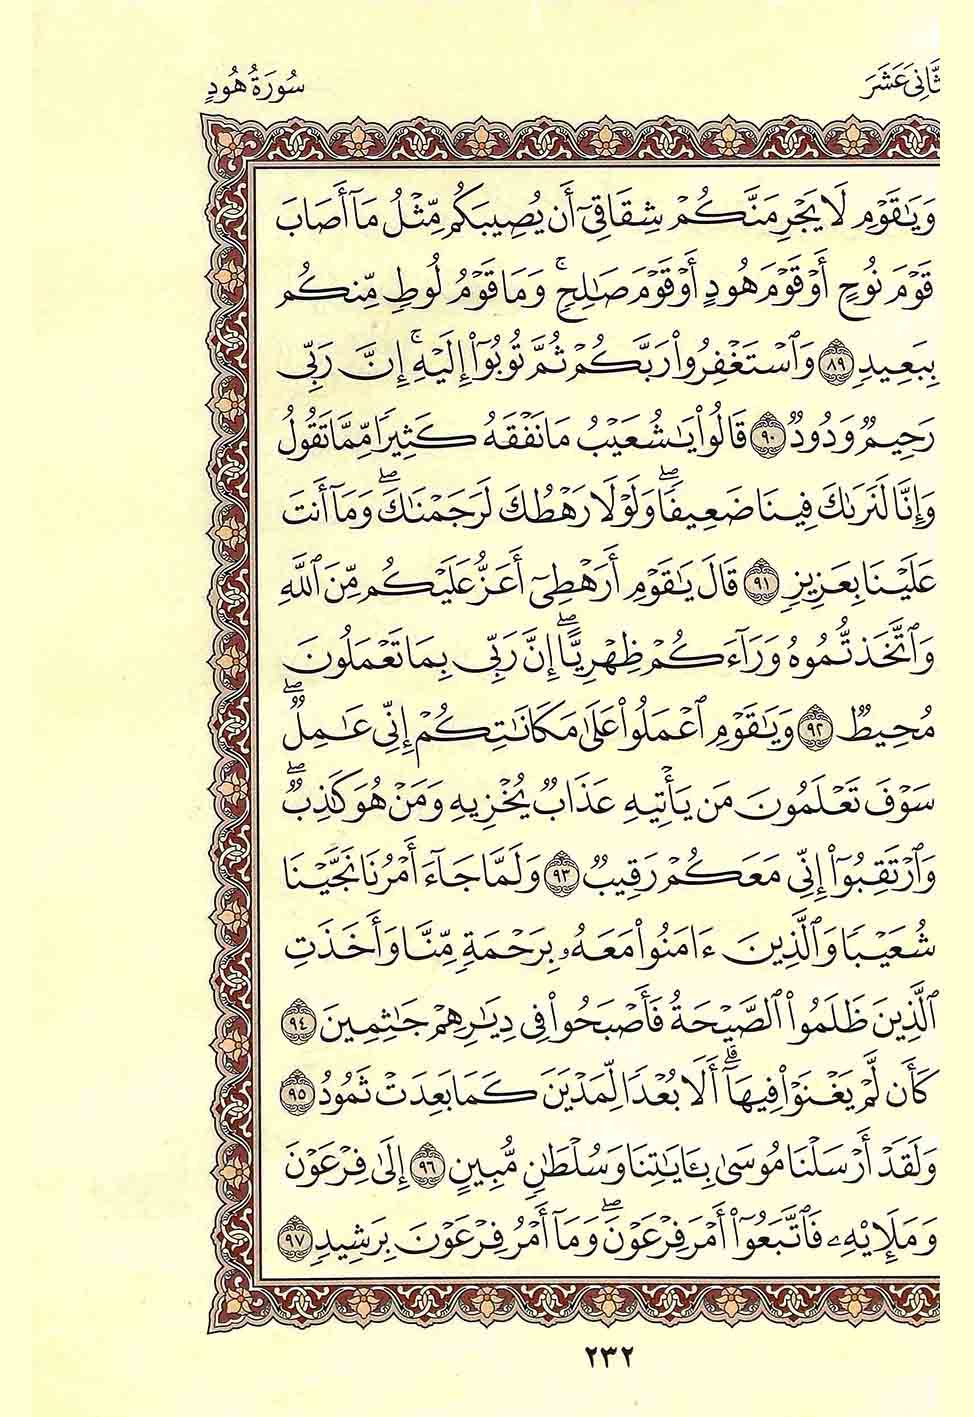 ثَّانِيَ عَشَرَ
سُورَةُ هُودٍ
وَيَٰقَوْمِ لَا يَجْرِمَنَّكُمْ شِقَاقِىٓ أَن يُصِيبَكُم مِّثْلُ مَآ أَصَابَ
قَوْمَ نُوحٍ أَوْ قَوْمَ هُودٍ أَوْ قَوْمَ صَٰلِحٍۚ وَمَا قَوْمُ لُوطٍ مِّنكُم
بِبَعِيدٍ ٨٩ وَٱسْتَغْفِرُوا۟ رَبَّكُمْ ثُمَّ تُوبُوٓا۟ إِلَيْهِۚ إِنَّ رَبِّى
رَحِيمٌ وَدُودٌ ٩٠ قَالُوا۟ يَٰشُعَيْبُ مَا نَفْقَهُ كَثِيرًا مِّمَّا تَقُولُ
وَإِنَّا لَنَرَىٰكَ فِينَا ضَعِيفًاۖ وَلَوْلَا رَهْطُكَ لَرَجَمْنَٰكَۖ وَمَآ أَنتَ
عَلَيْنَا بِعَزِيزٍ ٩١ قَالَ يَٰقَوْمِ أَرَهْطِىٓ أَعَزُّ عَلَيْكُم مِّنَ ٱللَّهِ
وَٱتَّخَذْتُمُوهُ وَرَآءَكُمْ ظِهْرِيًّاۖ إِنَّ رَبِّى بِمَا تَعْمَلُونَ
مُحِيطٌ ٩٢ وَيَٰقَوْمِ ٱعْمَلُوا۟ عَلَىٰ مَكَانَتِكُمْ إِنِّى عَٰمِلٌۖ
سَوْفَ تَعْلَمُونَ مَن يَأْتِيهِ عَذَابٌ يُخْزِيهِ وَمَنْ هُوَ كَٰذِبٌۖ
وَٱرْتَقِبُوٓا۟ إِنِّى مَعَكُمْ رَقِيبٌ ٩٣ وَلَمَّا جَآءَ أَمْرُنَا نَجَّيْنَا
شُعَيْبًا وَٱلَّذِينَ ءَامَنُوا۟ مَعَهُۥ بِرَحْمَةٍ مِّنَّا وَأَخَذَتِ
ٱلَّذِينَ ظَلَمُوا۟ ٱلصَّيْحَةُ فَأَصْبَحُوا۟ فِى دِيَٰرِهِمْ جَٰثِمِينَ ٩٤
كَأَن لَّمْ يَغْنَوْا۟ فِيهَآۗ أَلَا بُعْدًا لِّمَدْيَنَ كَمَا بَعِدَتْ ثَمُودُ ٩٥
وَلَقَدْ أَرْسَلْنَا مُوسَىٰ بِـَٔايَٰتِنَا وَسُلْطَٰنٍ مُّبِينٍ ٩٦ إِلَىٰ فِرْعَوْنَ
وَمَلَإِي۟هِۦ فَٱتَّبَعُوٓا۟ أَمْرَ فِرْعَوْنَۖ وَمَآ أَمْرُ فِرْعَوْنَ بِرَشِيدٍ ٩٧
٢٣٢